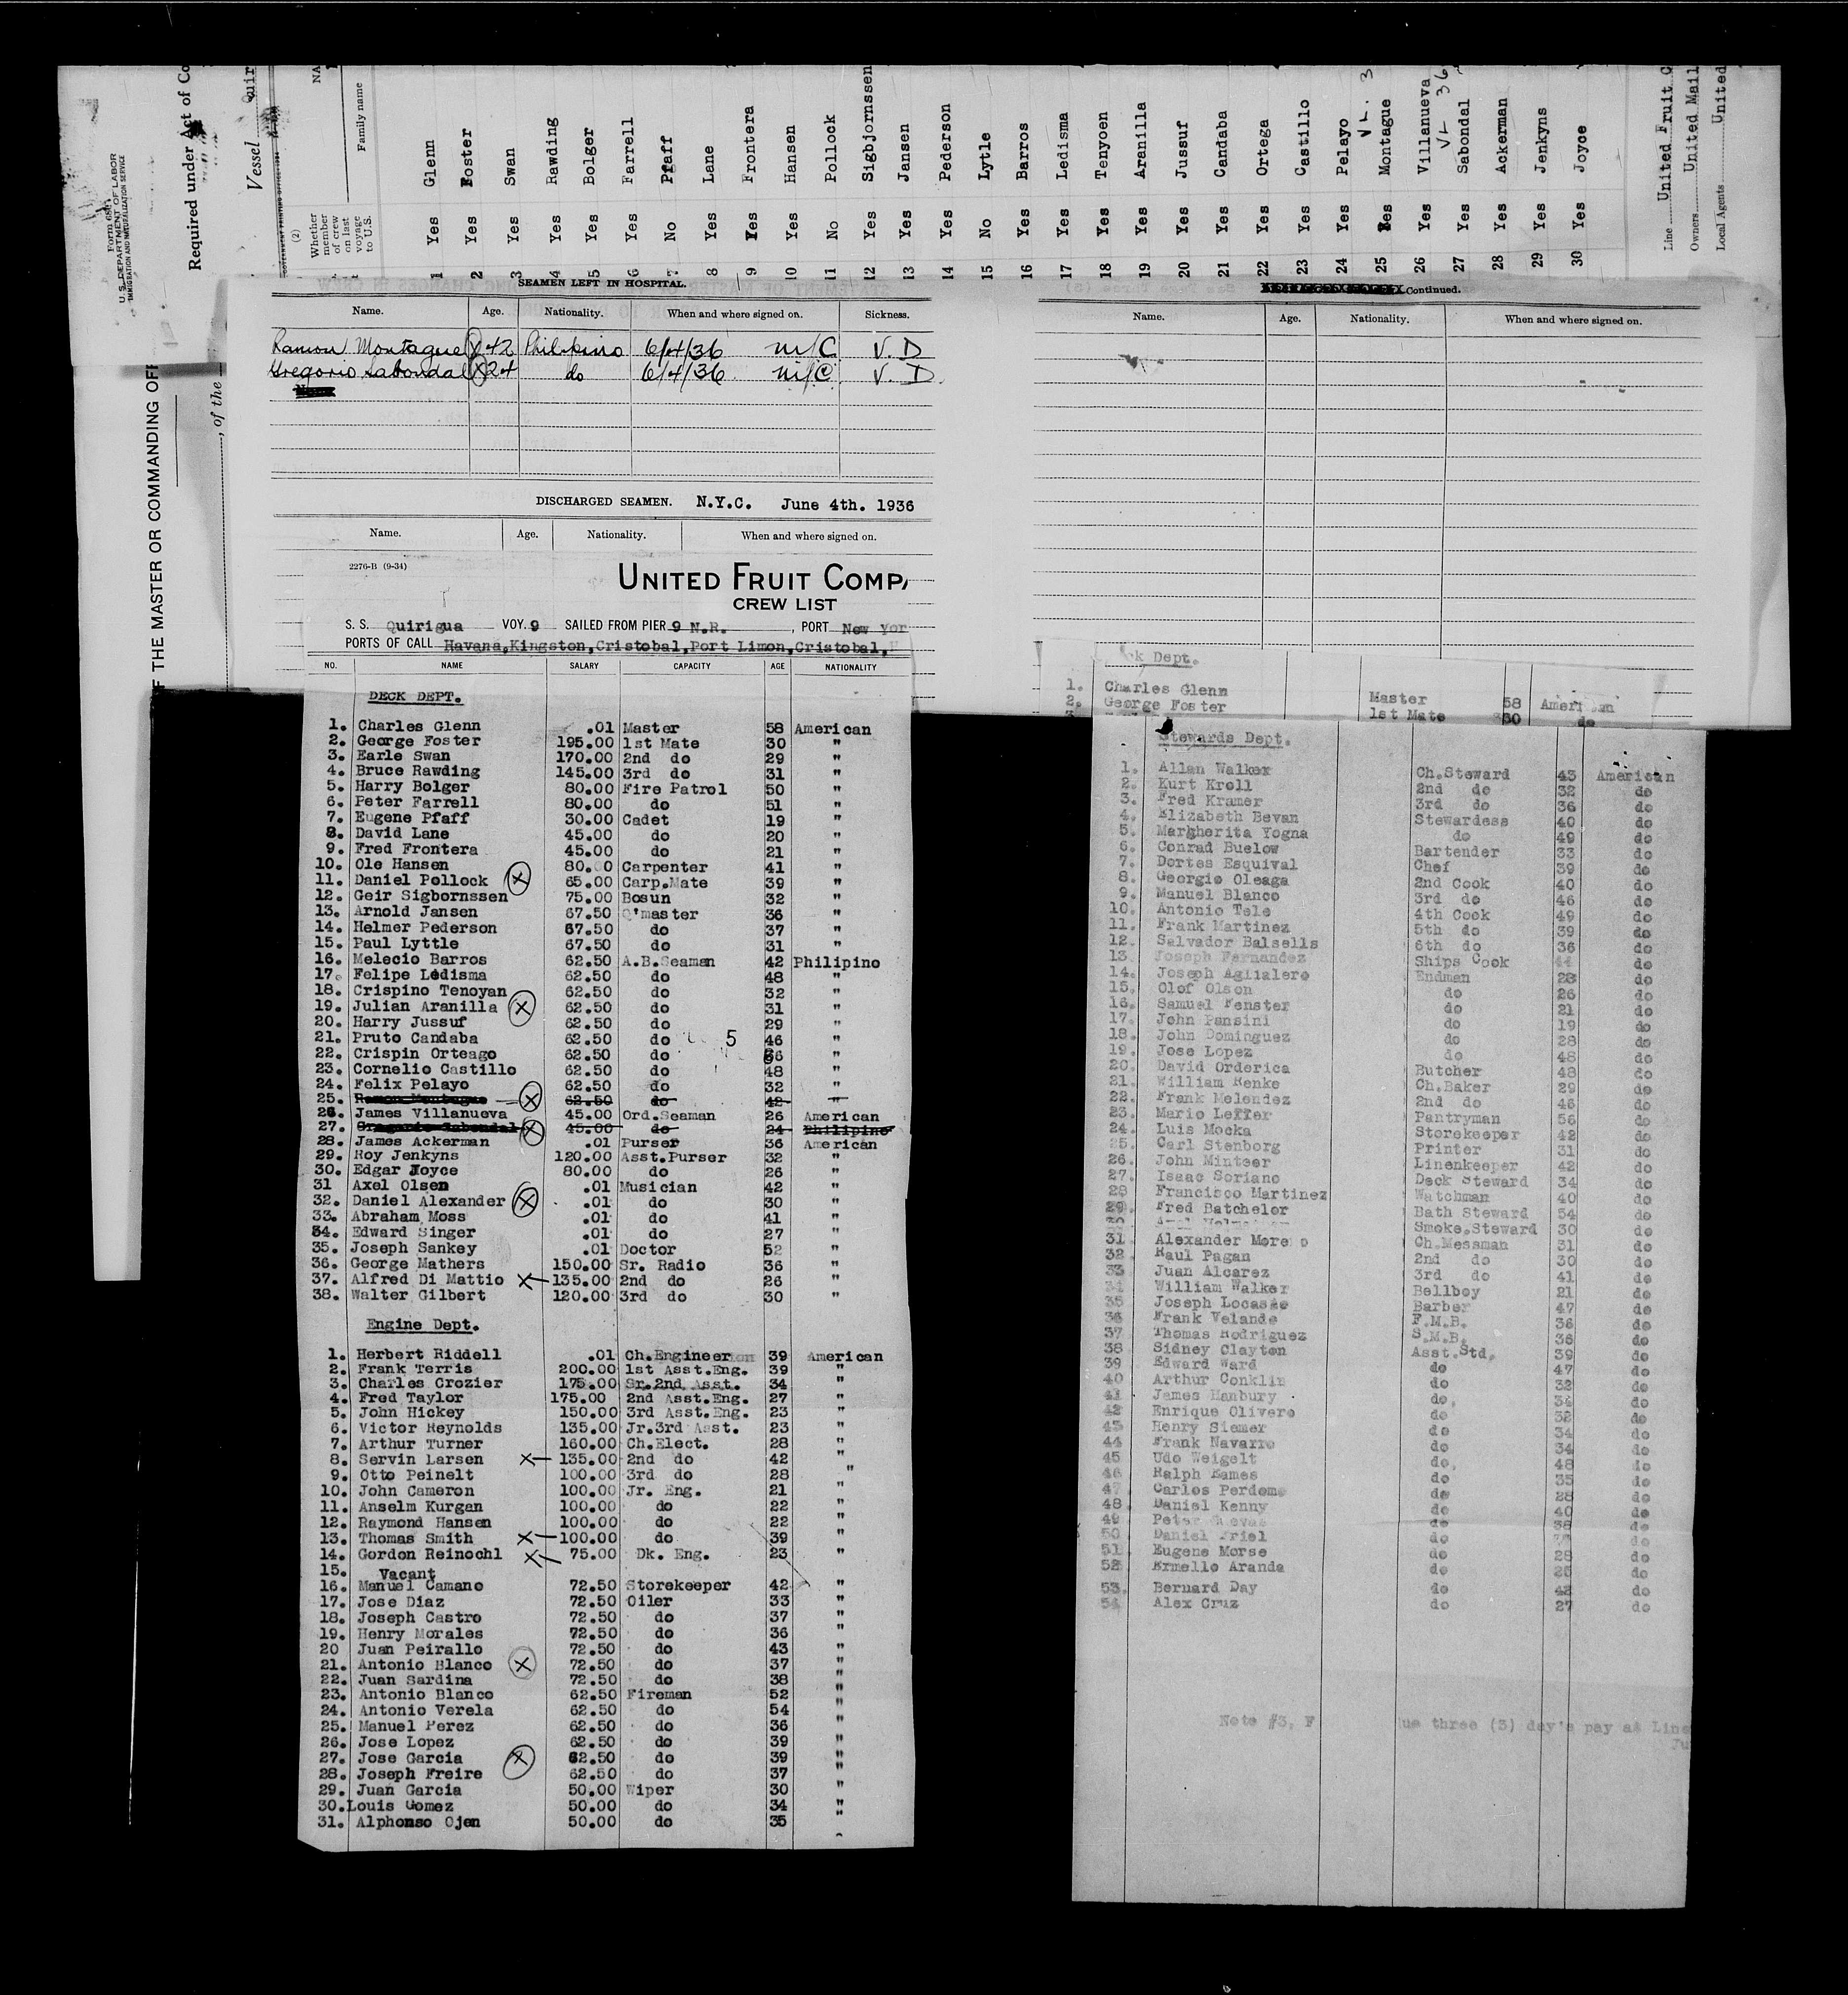 Form 680
U. S. DEPARTMENT OF LABOR
IMMIGRATION AND NATURALIZATION SERVICE
Required under Act of Co
Vessel Quir
(2)
Whether member of crew on last voyage to U.S.
NA
Family name
1 Yes Glenn
2 Yes Foster
3 Yes Swan
4 Yes Rawding
5 Yes Bolger
6 Yes Farrell
7 No Pfaff
8 Yes Lane
9 Yes Frontera
10 Yes Hansen
11 No Pollock
12 Yes Sigbjornssen
13 Yes Jansen
14 Yes Pederson
15 No Lytle
16 Yes Barros
17 Yes Ledisma
18 Yes Tenyoen
19 Yes Aranilla
20 Yes Jussuf
21 Yes Candaba
22 Yes Ortega
23 Yes Castillo
24 Yes Pelayo
25 Yes Montague VL. 3
26 Yes Villanueva
27 Yes Sabondal VL 36
28 Yes Ackerman
29 Yes Jenkyns
30 Yes Joyce
Line United Fruit C
Owners United Mail
Local Agents United
F THE MASTER OR COMMANDING OFF
, of the
SEAMEN LEFT IN HOSPITAL.
Name. Age. Nationality. When and where signed on. Sickness.
Ramon Montague X 42 Philipino 6/4/36 NYC V. D
Gregorio Sabondal X 24 do 6/4/36 NYC V. D.
DISCHARGED SEAMEN. N.Y.C. June 4th. 1936
Name. Age. Nationality. When and where signed on.
2276-B (9-34)
UNITED FRUIT COMPA
CREW LIST
S. S. Quirigua VOY. 9 SAILED FROM PIER 9 N.R. , PORT New Yor
PORTS OF CALL Havana,Kingston,Cristobal,Port Limon,Cristobal,
NO. NAME SALARY CAPACITY AGE NATIONALITY
DECK DEPT.
1. Charles Glenn .01 Master 58 American
2. George Foster 195.00 1st Mate 30 "
3. Earle Swan 170.00 2nd do 29 "
4. Bruce Rawding 145.00 3rd do 31 "
5. Harry Bolger 80.00 Fire Patrol 50 "
6. Peter Farrell 80.00 do 51 "
7. Eugene Pfaff 30.00 Cadet 19 "
8. David Lane 45.00 do 20 "
9. Fred Frontera 45.00 do 21 "
10. Ole Hansen 80.00 Carpenter 41 "
11. Daniel Pollock X 65.00 Carp.Mate 39 "
12. Geir Sigbornssen 75.00 Bosun 32 "
13. Arnold Jansen 67.50 Q'master 36 "
14. Helmer Pederson 67.50 do 37 "
15. Paul Lyttle 67.50 do 31 "
16. Melecio Barros 62.50 A.B.Seaman 42 Philipino
17. Felipe Ledisma 62.50 do 48 "
18. Crispino Tenoyan 62.50 do 32 "
19. Julian Aranilla X 62.50 do 31 "
20. Harry Jussuf 62.50 do 29 "
21. Pruto Candaba 62.50 do 5 46 "
22. Crispin Orteago 62.50 do 36 "
23. Cornelio Castillo 62.50 do 48 "
24. Felix Pelayo 62.50 do 32 "
25. Ramon Montague X 62.50 do 42 "
26. James Villanueva 45.00 Ord.Seaman 26 American
27. Gregorio Sabondal X 45.00 do 24 Philipino
28. James Ackerman .01 Purser 36 American
29. Roy Jenkyns 120.00 Asst.Purser 32 "
30. Edgar Joyce 80.00 do 26 "
31 Axel Olsen .01 Musician 42 "
32. Daniel Alexander X .01 do 30 "
33. Abraham Moss .01 do 41 "
34. Edward Singer .01 do 27 "
35. Joseph Sankey .01 Doctor 52 "
36. George Mathers 150.00 Sr. Radio 36 "
37. Alfred Di Mattio X 135.00 2nd do 26 "
38. Walter Gilbert 120.00 3rd do 30 "
Engine Dept.
1. Herbert Riddell .01 Ch.Engineer 39 American
2. Frank Terris 200.00 1st Asst.Eng. 39 "
3. Charles Crozier 175.00 Sr.2nd Asst. 34 "
4. Fred Taylor 175.00 2nd Asst.Eng. 27 "
5. John Hickey 150.00 3rd Asst.Eng. 23 "
6. Victor Reynolds 135.00 Jr.3rd Asst. 23 "
7. Arthur Turner 160.00 Ch.Elect. 28 "
8. Servin Larsen X 135.00 2nd do 42 "
9. Otto Peinelt 100.00 3rd do 28 "
10. John Cameron 100.00 Jr. Eng. 21 "
11. Anselm Kurgan 100.00 do 22 "
12. Raymond Hansen 100.00 do 22 "
13. Thomas Smith X 100.00 do 39 "
14. Gordon Reinochl X 75.00 Dk. Eng. 23 "
15. Vacant
16. Manuel Camano 72.50 Storekeeper 42 "
17. Jose Diaz 72.50 Oiler 33 "
18. Joseph Castro 72.50 do 37 "
19. Henry Morales 72.50 do 36 "
20 Juan Peirallo 72.50 do 43 "
21. Antonio Blanco X 72.50 do 37 "
22. Juan Sardina 72.50 do 38 "
23. Antonio Blanco 62.50 Fireman 52 "
24. Antonio Verela 62.50 do 54 "
25. Manuel Perez 62.50 do 36 "
26. Jose Lopez 62.50 do 39 "
27. Jose Garcia X 62.50 do 39 "
28. Joseph Freire 62.50 do 37 "
29. Juan Garcia 50.00 Wiper 30 "
30. Louis Gomez 50.00 do 34 "
31. Alphonso Ojen 50.00 do 35 "
Continued.
Name. Age. Nationality. When and where signed on.
ck Dept.
1. Charles Glenn Master 58 American
2. George Foster 1st Mate 30 do
Stewards Dept.
1. Allan Walker Ch.Steward 43 American
2. Kurt Kroll 2nd do 32 do
3. Fred Kramer 3rd do 36 do
4. Elizabeth Bevan Stewardess 40 do
5. Margherita Yogna do 49 do
6. Conrad Buelow Bartender 33 do
7. Dortes Esquival Chef 39 do
8. Georgio Oleaga 2nd Cook 40 do
9. Manuel Blanco 3rd do 46 do
10. Antonio Tele 4th Cook 49 do
11. Frank Martinez 5th do 39 do
12. Salvador Balsells 6th do 36 do
13. Joseph Fernandez Ships Cook 44 do
14. Joseph Aguialero Endman 28 do
15. Olof Olson do 26 do
16. Samuel Fenster do 21 do
17. John Pansini do 19 do
18. John Dominguez do 28 do
19. Jose Lopez do 48 do
20. David Orderica Butcher 48 do
21. William Henke Ch.Baker 29 do
22. Frank Melendez 2nd do 46 do
23. Mario Leffer Pantryman 56 do
24. Luis Mocka Storekeeper 42 do
25. Carl Stenborg Printer 31 do
26. John Minteer Linenkeeper 42 do
27. Isaac Soriano Deck Steward 34 do
28 Francisco Martinez Watchman 40 do
29. Fred Batchelor Bath Steward 54 do
30 Smoke.Steward 30 do
31 Alexander Moreno Ch.Messman 31 do
32 Raul Pagan 2nd do 30 do
33 Juan Alcarez 3rd do 41 do
34 William Walker Bellboy 21 do
35 Joseph Locasse Barber 47 do
36 Frank Velande F.M.B. 36 do
37 Thomas Rodriguez S.M.B. 36 do
38 Sidney Clayton Asst.Std. 39 do
39 Edward Ward do 47 do
40 Arthur Conklin do 32 do
41 James Hanbury do 34 do
42 Enrique Olivero do 32 do
43 Henry Siemer do 34 do
44 Frank Navarro do 34 do
45 Udo Weigelt do 48 do
46 Ralph Eames do 35 do
47 Carlos Perdomo do 28 do
48 Daniel Kenny do 40 do
49 Peter Cuevas do 36 do
50 Daniel Friel do do
51 Eugene Morse do 28 do
52 Ermello Aranda do 25 do
53. Bernard Day do 42 do
54 Alex Cruz do 27 do
Note #3, F ue three (3) day's pay as Line
Ju